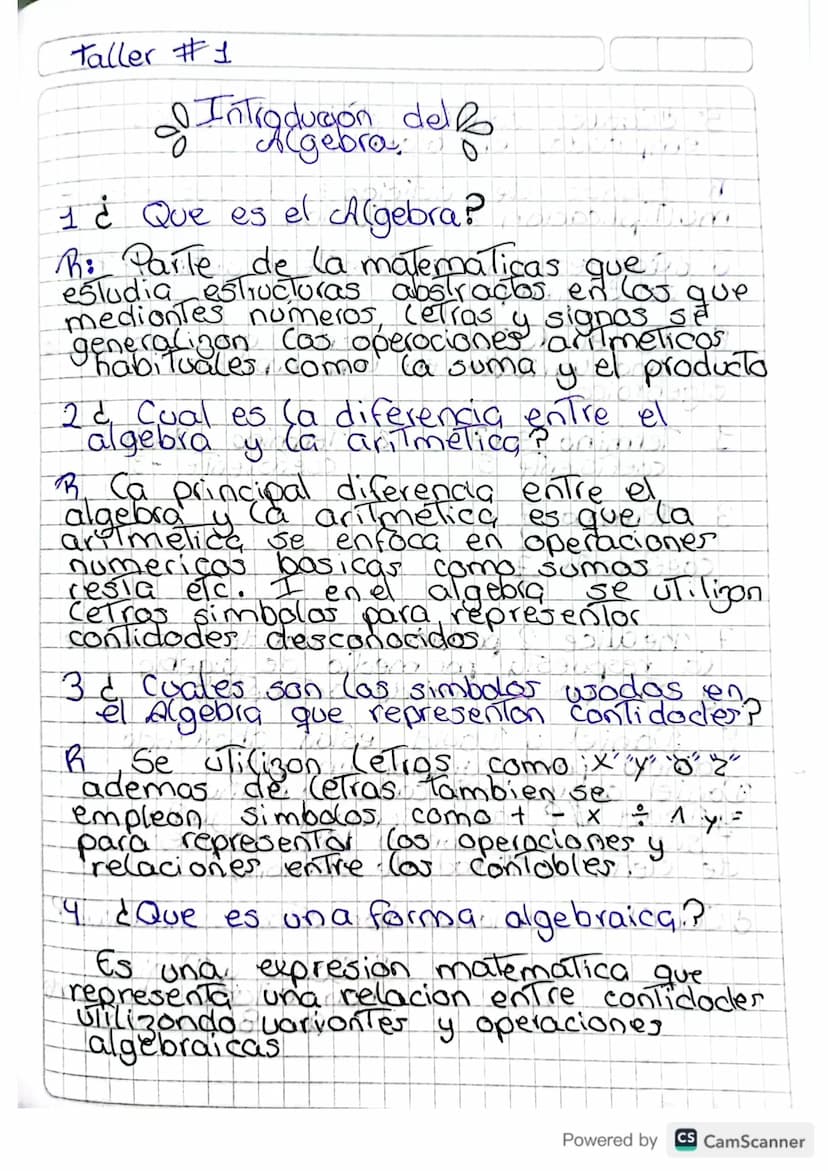 Taller # 1
Introducción del
Algebra.
1 ¿ Que es el Algebra?
R: Parte de la matematicas que
estudia estructuras abstractas en las que
mediantes numeros, letras y signos se
generalizan las operaciones aritmeticos
habituales, como la suma y el producto
2 ¿ Cual es la diferencia entre el
algebra y la aritmética?
R La principal diferencia entre el
algebra y la aritmética es que la
aritmetica se enfoca en operaciones
numericas basicas como sumas
resta etc. I en el algebra se utilizan
letras simbolos para representar
contidades desconocidos
3 ¿ Cuales son las simbolos usados en
el Algebra que representan contidades?
R Se utilizan letras como "x" "y" "o" "z"
ademas de letras tambien se
emplean simbolos como + - x ÷ ^ y =
para representar las operaciones y
relaciones entre las contables.
4 ¿Que es una forma algebraica?
Es una expresion matematica que
representa una relacion entre contidades
utilizando variontes y operaciones
algebraicas
Powered by CS CamScanner